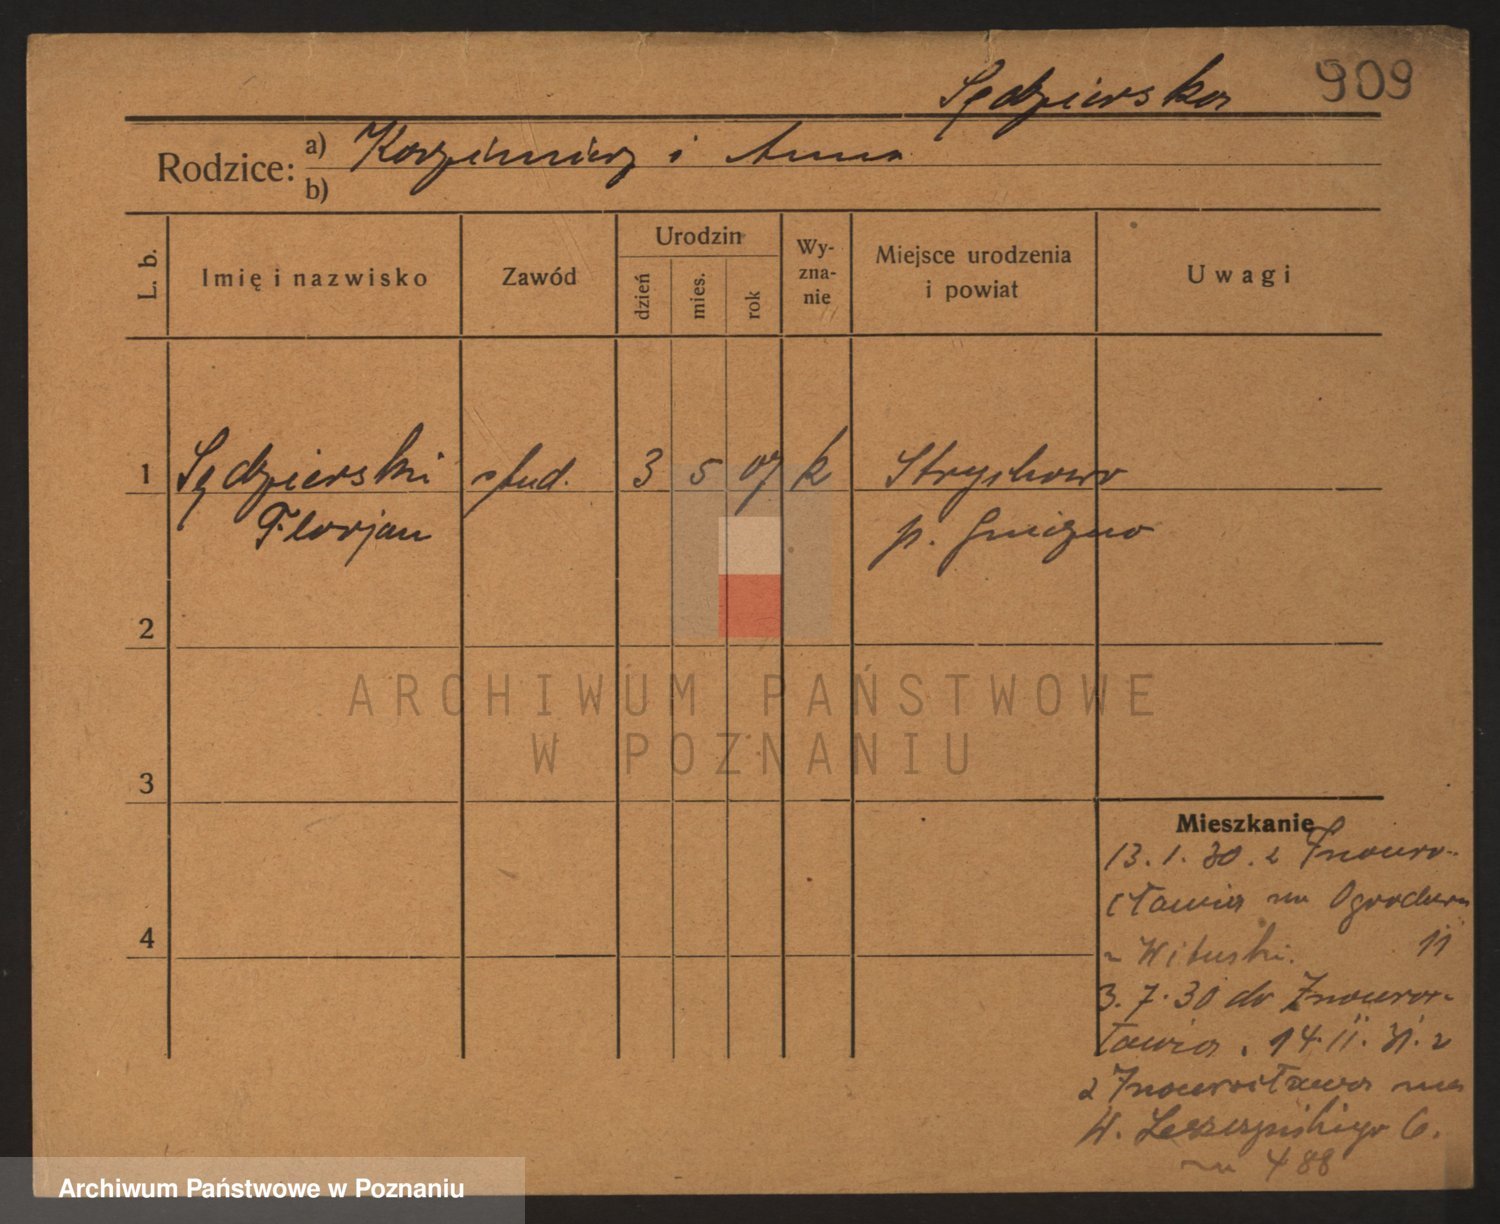 909
Sędzierska
Rodzice: a) Kazimierz i Anna
b)
L. b.
Imię i nazwisko
Zawód
Urodzin
dzień
mies.
rok
Wy-
zna-
nie
Miejsce urodzenia
i powiat
Uwagi
1 Sędzierski stud. 3 5 07 k Strychowo
Florjan p. Gniezno
2
3
4
ARCHIWUM PAŃSTWOWE
W POZNANIU
Mieszkanie
13.1.30. z Inowro-
cławia na Ogrodowa
Wituski. 11
3.7.30 do Inowroc-
ławia. 14.11.31. z
z Inowrocławia na
W. Leszczyńskiego 6.
m 488
Archiwum Państwowe w Poznaniu